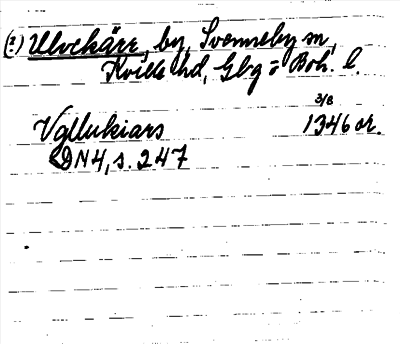 (?) Ulvekärr, by, Svenneby sn,
Kville hd, Gbg o Boh. l.
3/8
Vgllukiars 1346 or.
DN4, s. 247